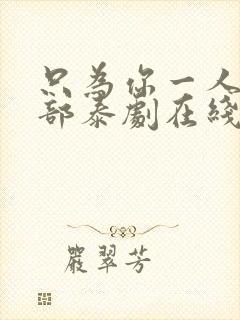 只為你一人
部泰劇在綫
嚴翠芳